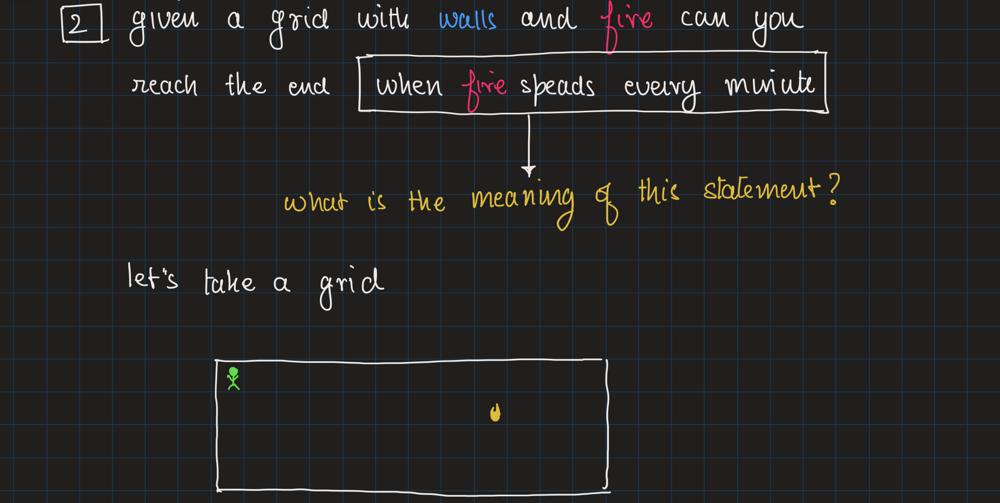 2 given a grid with walls and fire can you
reach the end when fire speads every minute
what is the meaning of this statement?
let's take a grid